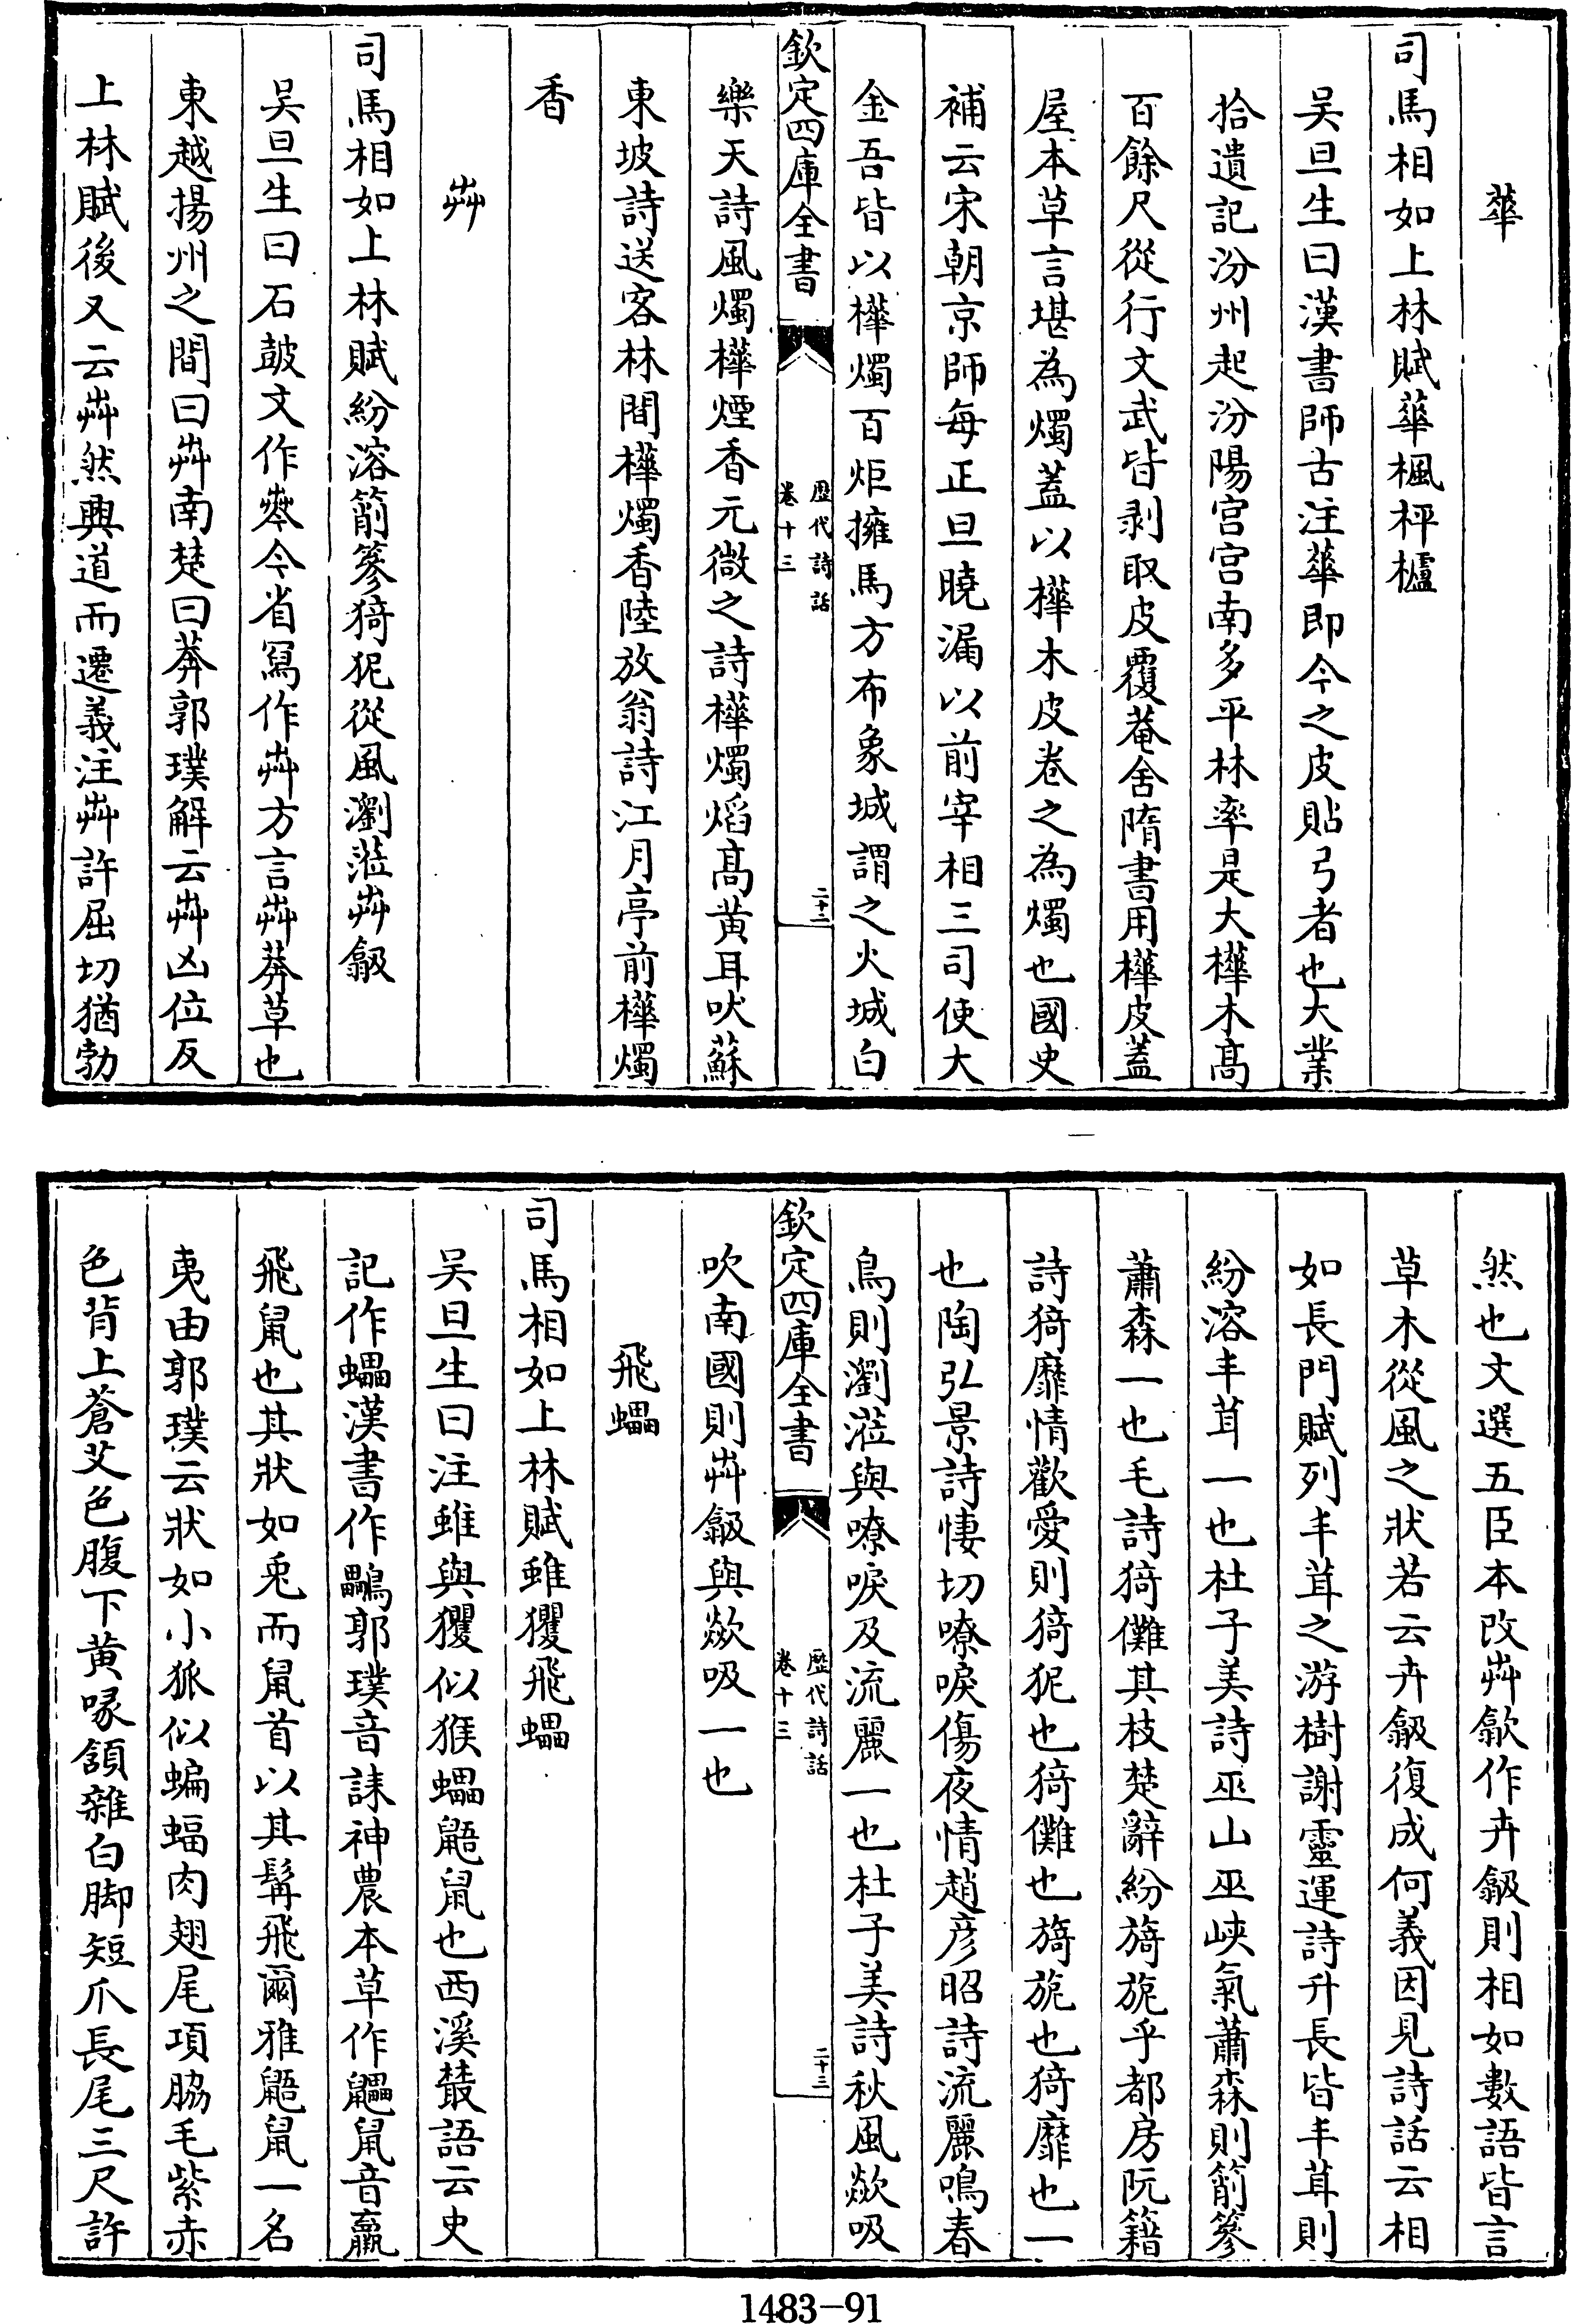 華
司馬相如上林賦華楓枰櫨
吳旦生曰漢書師古注華即今之皮貼弓者也大業
拾遺記汾州起汾陽宮宮南多平林率是大樺木髙
百餘尺從行文武皆剥取皮覆菴舍隋書用樺皮蓋
屋本草言堪為燭蓋以樺木皮卷之為燭也國史
補云宋朝京師每正旦曉漏以前宰相三司使大
金吾皆以樺燭百炬擁馬方布象城謂之火城白
欽定四庫全書
歴代詩話
卷十三
二十二
樂天詩風燭樺煙香元微之詩樺燭焰髙黃耳吠蘇
東坡詩送客林間樺燭香陸放翁詩江月亭前樺燭
香
芔
司馬相如上林賦紛溶箾蔘猗狔從風瀏莅芔歙
吳旦生曰石鼓文作今省寫作芔方言芔莽草也
東越揚州之間曰芔南楚曰莽郭璞解云芔凶位反
上林賦後又云芔然興道而遷義注芔許屈切猶勃
然也文選五臣本改芔歙作卉歙則相如數語皆言
草木從風之狀若云卉歙復成何義因見詩話云相
如長門賦列丰茸之游樹謝靈運詩升長皆丰茸則
紛溶丰茸一也杜子美詩巫山巫峽氣蕭森則箾蔘
蕭森一也毛詩猗儺其枝楚辭紛旖旎乎都房阮籍
詩猗靡情歡愛則猗狔也猗儺也旖旎也猗靡也一
也陶弘景詩悽切嘹唳傷夜情趙彦昭詩流麗鳴春
鳥則瀏莅與嘹唳及流麗一也杜子美詩秋風歘吸
欽定四庫全書
歴代詩話
卷十三
二十三
吹南國則芔歙與歘吸一也
飛蠝
司馬相如上林賦蜼玃飛蠝
吳旦生曰注蜼與玃似猴蠝鼯鼠也西溪叢語云史
記作蠝漢書作鸓郭璞音誄神農本草作鼺鼠音羸
飛鼠也其狀如兎而鼠首以其髯飛爾雅鼯鼠一名
夷由郭璞云狀如小狐似蝙蝠肉翅尾項脇毛紫赤
色背上蒼艾色腹下黃喙頷雜白脚短爪長尾三尺許
1483-91